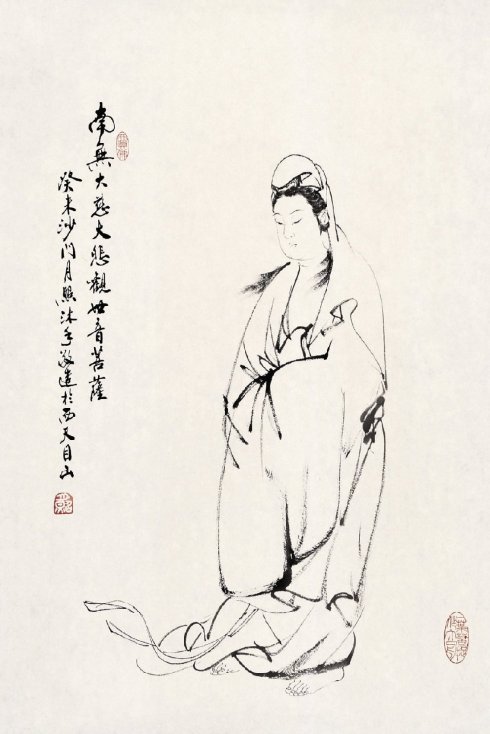 南無大慈大悲觀世音菩薩
癸未沙门月照沐手敬造於西天目山